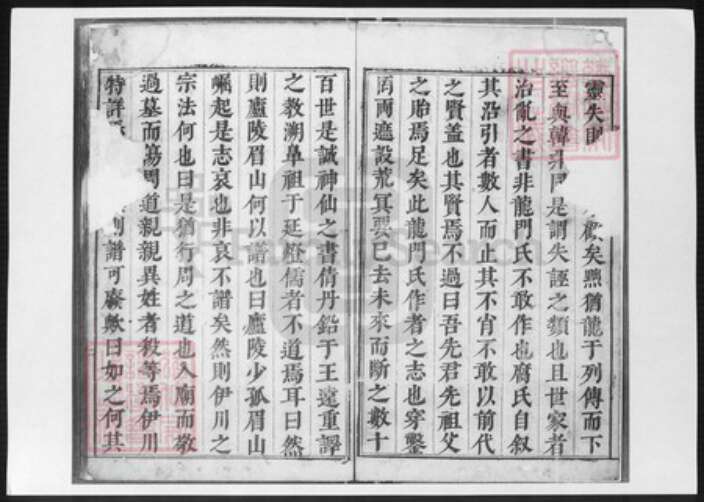 靈失 矣㷊猶龍于列傳而下
至與韓 同是謂失誣之類也且世家者
治亂之書非龍門氏不敢作也腐氏自叙
其沿引者數人而止其不肖不敢以前代
之賢蓋也其賢焉不過曰吾先君先祖父
之貽焉足矣此龍門氏作者之志也穿鑿
兩遮設荒冥要已去未來而斷之數十
百世是誠神仙之書倩丹鉛于王遠重譯
之教溯鼻祖于廷燈儒者不道焉耳曰然
則廬陵眉山何以譜也曰廬陵少孤眉山
崛起是志哀也非哀不譜矣然則伊川之
宗法何也曰是猶行周之道也入廟而敬
過墓而 問道親親異姓者殺等焉伊川
特詳 則譜可廢歟曰如之何其
FamilySearch